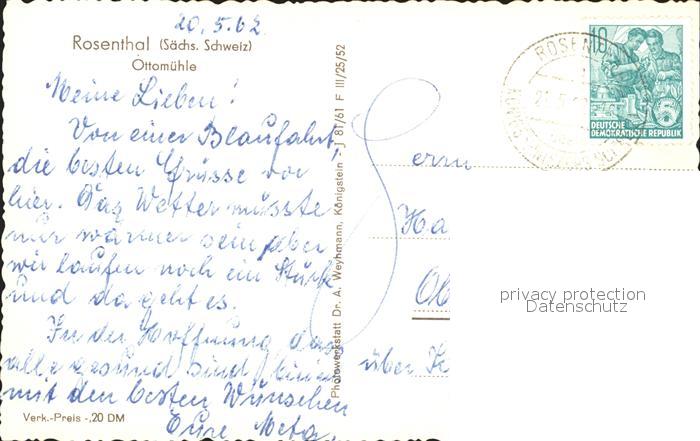 20.5.62
Rosenthal (Sächs. Schweiz)
Ottomühle
Meine Lieben!
Von einer Blaufahrt,
die besten Grüsse von
hier. Das Wetter müsste
nur wärmer sein, aber
wir laufen noch ein Stück
und da geht es.
In der Hoffnung das
alle gesund sind bin ich
mit den besten Wünschen
Eure Meta.
Verk.-Preis -,20 DM
Photowerkstatt Dr. A. Weyhmann, Königstein - J 81/61 F III/25/52
10
DEUTSCHE
DEMOKRATISCHE REPUBLIK
ROSEN
Herrn
Ha
Ob
über
privacy protection
Datenschutz